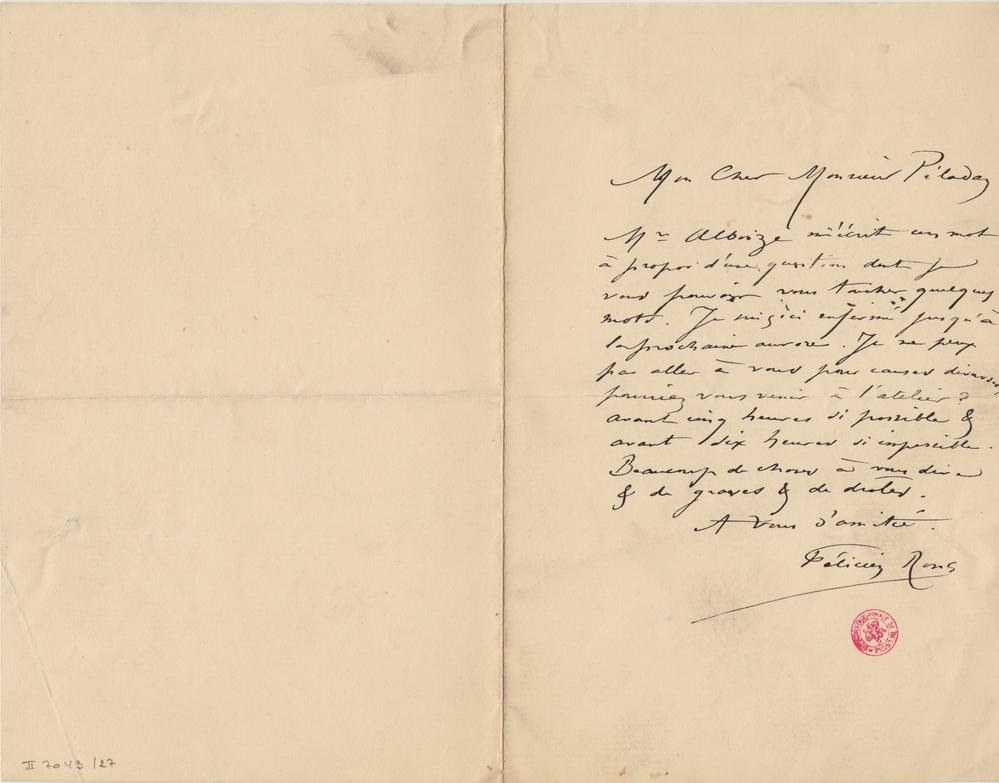 Mon Cher Monsieur Péladan
Mr Alboize m'écrit un mot
à propos d'une question dont je
vous pouvoir vous toucher quelques
mots. Je suis ici enfermé jusqu'à
la prochaine aurore. Je ne peux
pas aller à vous pour causer
pourriez vous venir à l'atelier?
avant cinq heures si possible &
avant dix heures si impossible.
Beaucoup de choses à vous dire
& de graves & de drôles.
A vous d'amitié.
Félicien Rops
BIBLIOTHEQUE ROYALE DE BELGIQUE
II 7043 /27